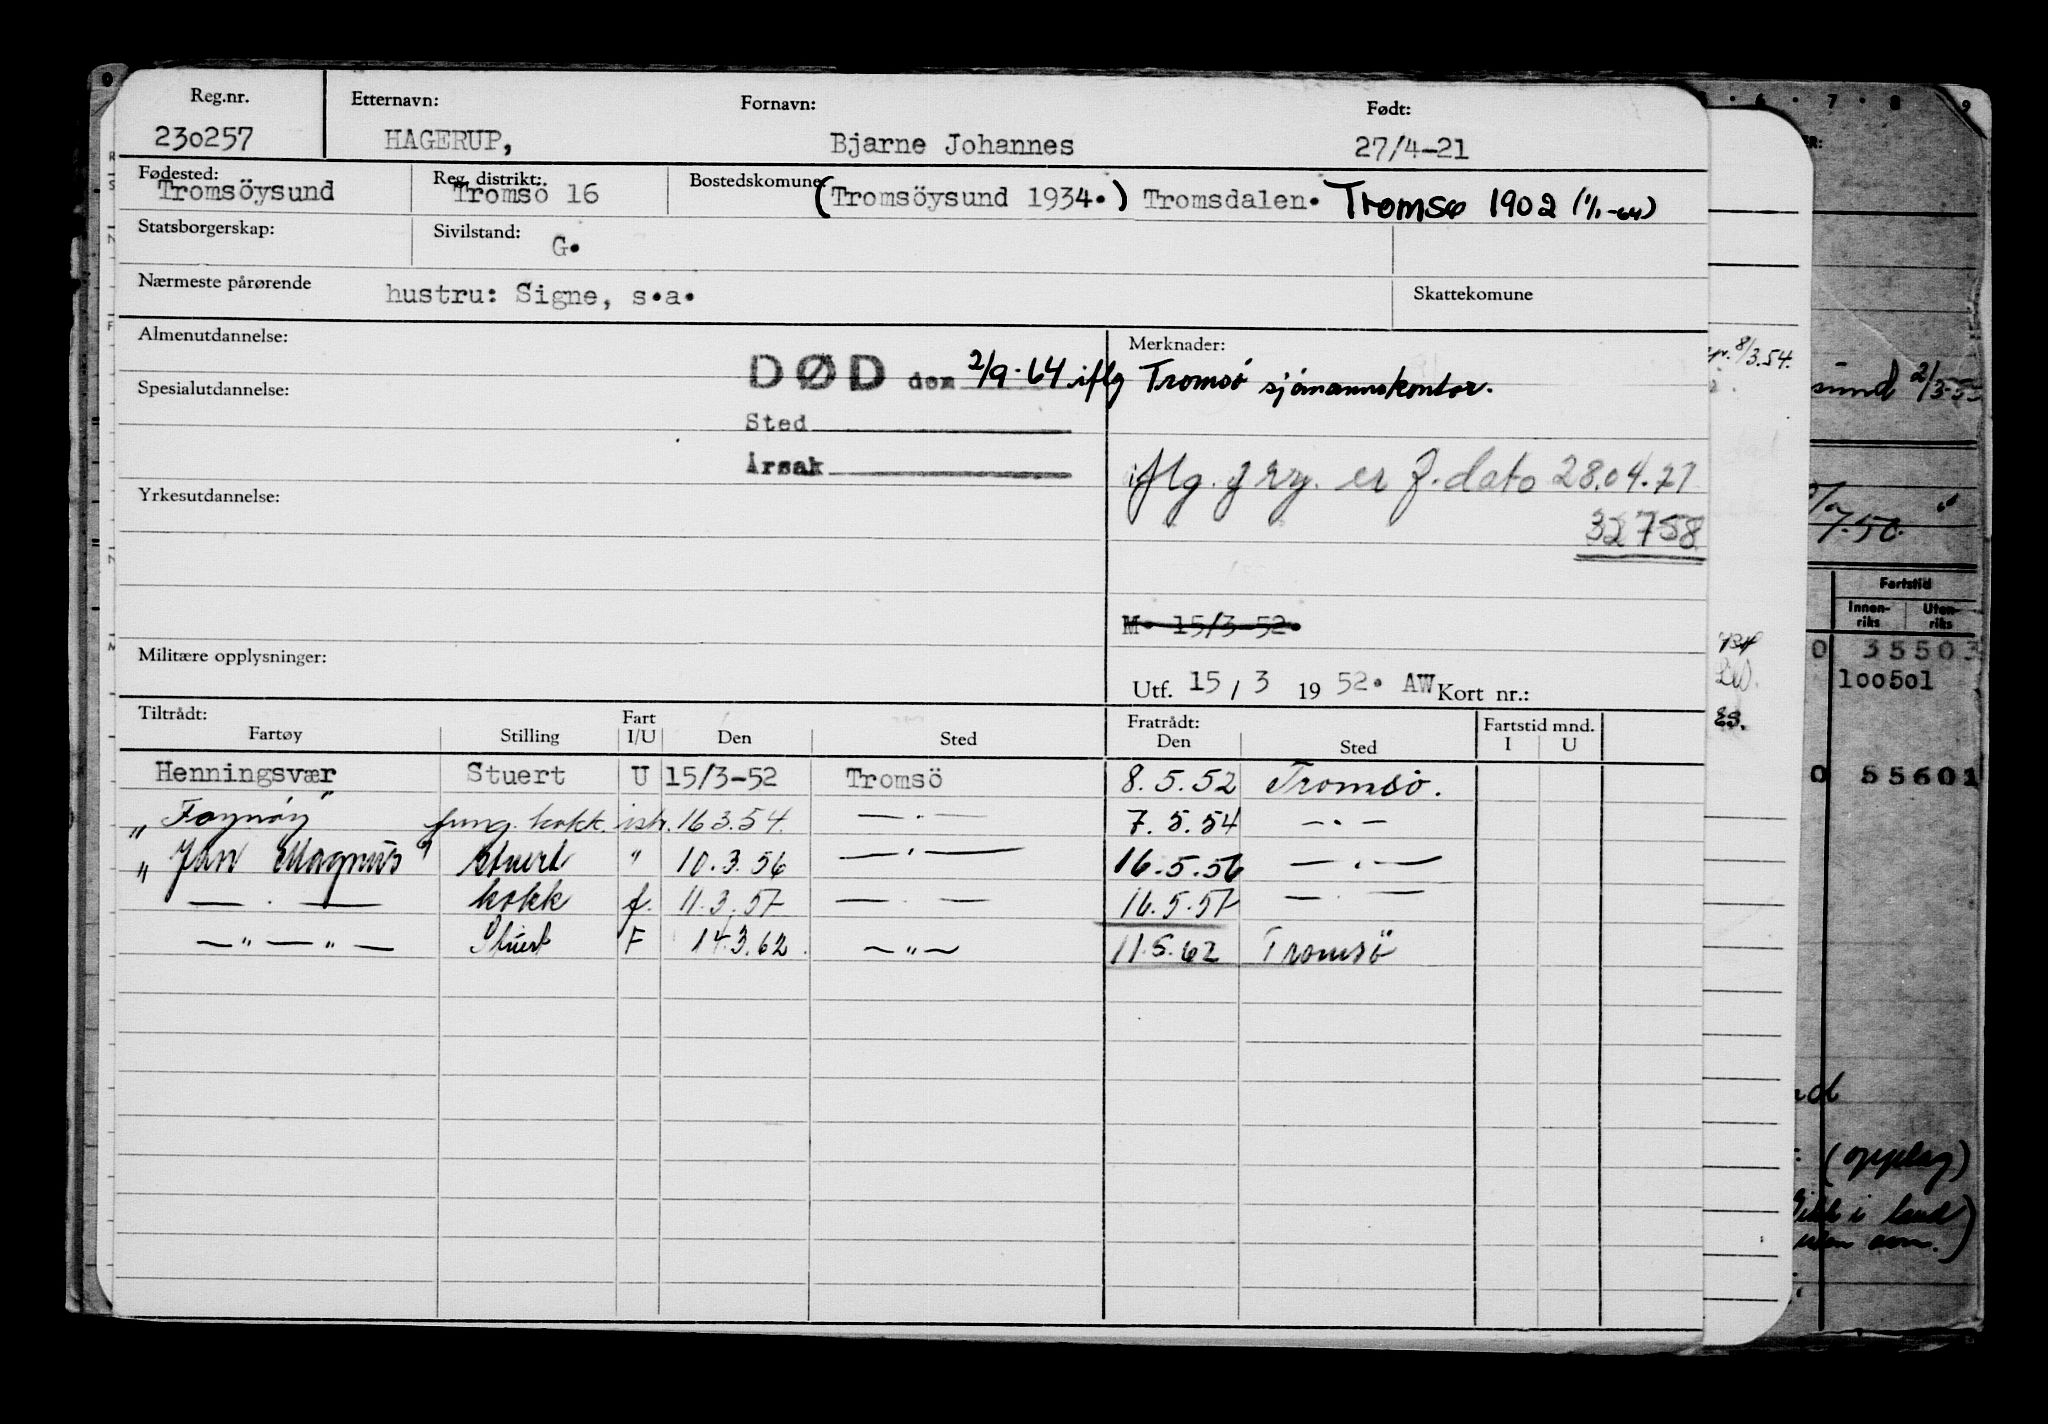 Reg.nr. Etternavn: Fornavn: Født:
230257 HAGERUP, Bjarne Johannes 27/4-21
Fødested: Reg. distrikt: Bostedskomune
Tromsöysund Tromsö 16 (Tromsöysund 1934.) Tromsdalen. Tromsø 1902 (1/1-64)
Statsborgerskap: Sivilstand: G.
Nærmeste pårørende hustru: Signe, s.a. Skattekomune
Almenutdannelse: Merknader:
DØD den 2/9-64 iflg Tromsö sjömannskontor.
Spesialutdannelse:
Sted
Årsak
iflg. f. er f. dato 28.04.21
32758
Yrkesutdannelse:
M. 15/3-52.
Militære opplysninger:
Utf. 15 / 3 19 52. AW Kort nr.:
Tiltrådt: Fart Fratrådt: Fartstid mnd.
Fartøy Stilling I/U Den Sted Den Sted I U
Henningsvær Stuert U 15/3-52 Tromsö 8.5.52 Tromsö.
"Føynöy" fung. kokk. ish. 16 3.54. — . — 7. 5. 54 — . —
"Jan Magnus" stuert " 10.3.56 — " — 16.5.56 — . —
— . — kokk f. 11.3.57 — . — 16.5.57 — . —
— " — " — Stuert F 14.3.62. — " — 11.5.62 Tromsö
6 · 7 · 8 9
8/3.54.
sund 2/3-53
7.50. "
Fartstid
Innen-riks Uten-riks
0 35503
100501
0 55601
(opplag)
i land